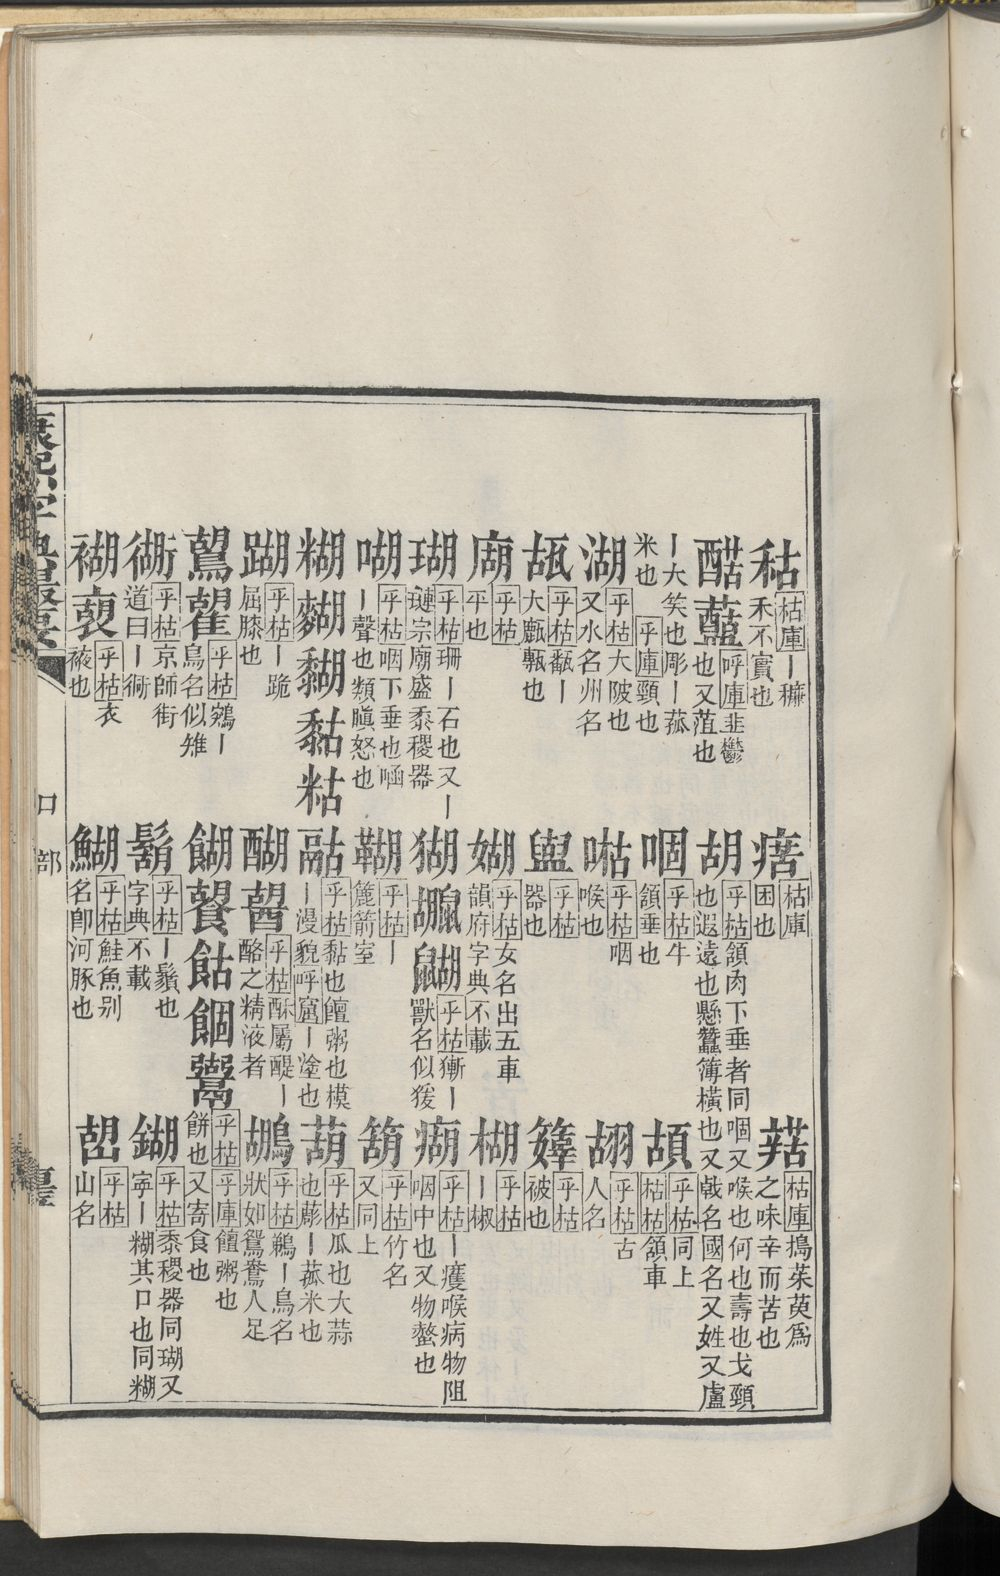 枯庫ー穅禾不實也
枯庫困也
枯庫搗茱萸爲之味辛而苦也
呼庫韭鬱也又菹也
胡 乎枯頷肉下垂者同 又喉也何也壽也戈頸也遐遠也懸蠶簿橫也又戟名國名又姓又盧ー大笑也彫ー菰米也 乎庫頸也
乎枯牛頷垂也
乎枯同上枯枯頷車
湖 乎枯大陂也又水名州名
乎枯咽喉也
乎枯古人名
瓳 乎枯 ー大 也
乎枯器也
乎枯被也
乎枯平也
媩 乎枯女名出五車韻府字典不載
楜 乎枯ー椒
瑚 乎枯珊ー石也又ー璉宗廟盛黍稷器
猢 乎枯獑ー獸名似猨
乎枯ー 喉病物阻咽中也又物 也
喖 乎枯咽下垂也 ー聲也類瞋怒也
乎枯ー簏箭室
箶 乎枯竹名又同上
糊 黏粘 乎枯黏也饘粥也模ー漫貌呼 ー塗也
葫 乎枯瓜也大蒜也 ー菰米也
乎枯ー跪屈膝也
醐 乎枯酥屬醍ー酪之精液者
鶘 乎枯鵜ー鳥名狀如鴛鴦人足
乎枯 ー鳥名似雉
餬 乎枯餅也又寄食也乎庫饘粥也
衚 乎枯京師街道曰ー衕
鬍 乎枯ー鬚也字典不載
鍸 乎枯黍稷器同瑚又寧ー糊其口也同糊
乎枯衣 也
鰗 乎枯鮭魚别名卽河豚也
乎枯山名
康熙字典撮要 口部